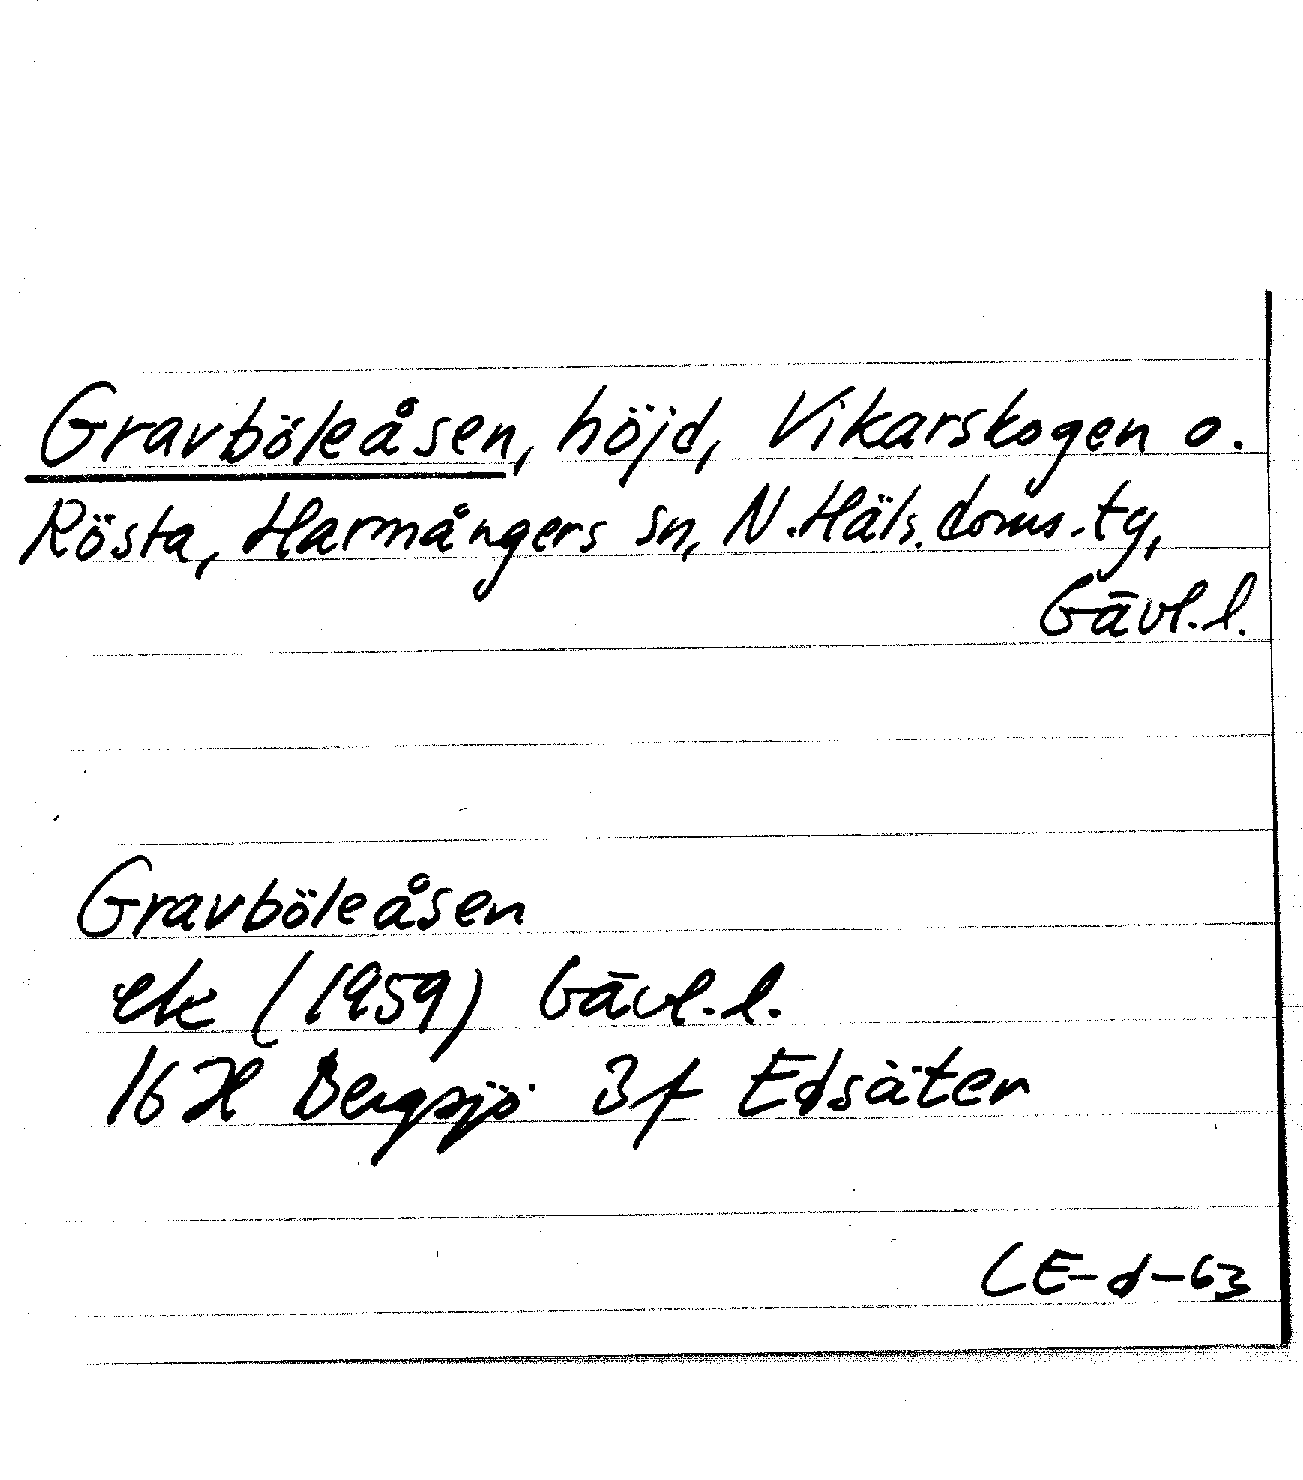 Gravböleåsen, höjd, Vikarskogen o.
Rösta, Harmångers sn, N. Häls. doms. tg,
Gävl. l.
Gravböleåsen
ek (1959) Gävl. l.
16H Bergsjö 3f Edsäter
CE-d-63